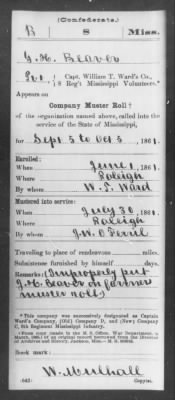 (Confederate.)
B 8 Miss.
J. H. Beaver
Pvt., Capt. William T. Ward's Co.,
8 Reg't Mississippi Volunteers.*
Appears on
Company Muster Roll †
of the organization named above, called into the
service of the State of Mississippi,
for Sept 5 to Oct 5, 1861.
Enrolled:
When June 1, 1861.
Where Raleigh
By whom W. T. Ward
Mustered into service:
When July 30, 1861.
Where Raleigh
By whom J. W. O'Ferril
Traveling to place of rendezvous miles.
Subsistence furnished by himself days.
Remarks: (Improperly put
J. H. Beaver on former
muster roll)
*This company was successively designated as Captain
Ward's Company, (Old) Company D, and (New) Company
C, 8th Regiment Mississippi Infantry.
†From copy made in the R. & P. Office, War Department,
of original record borrowed from the Director
of Archives and History, Jackson, Miss.
Book mark:
(642) W. Mulhall
Copyist.